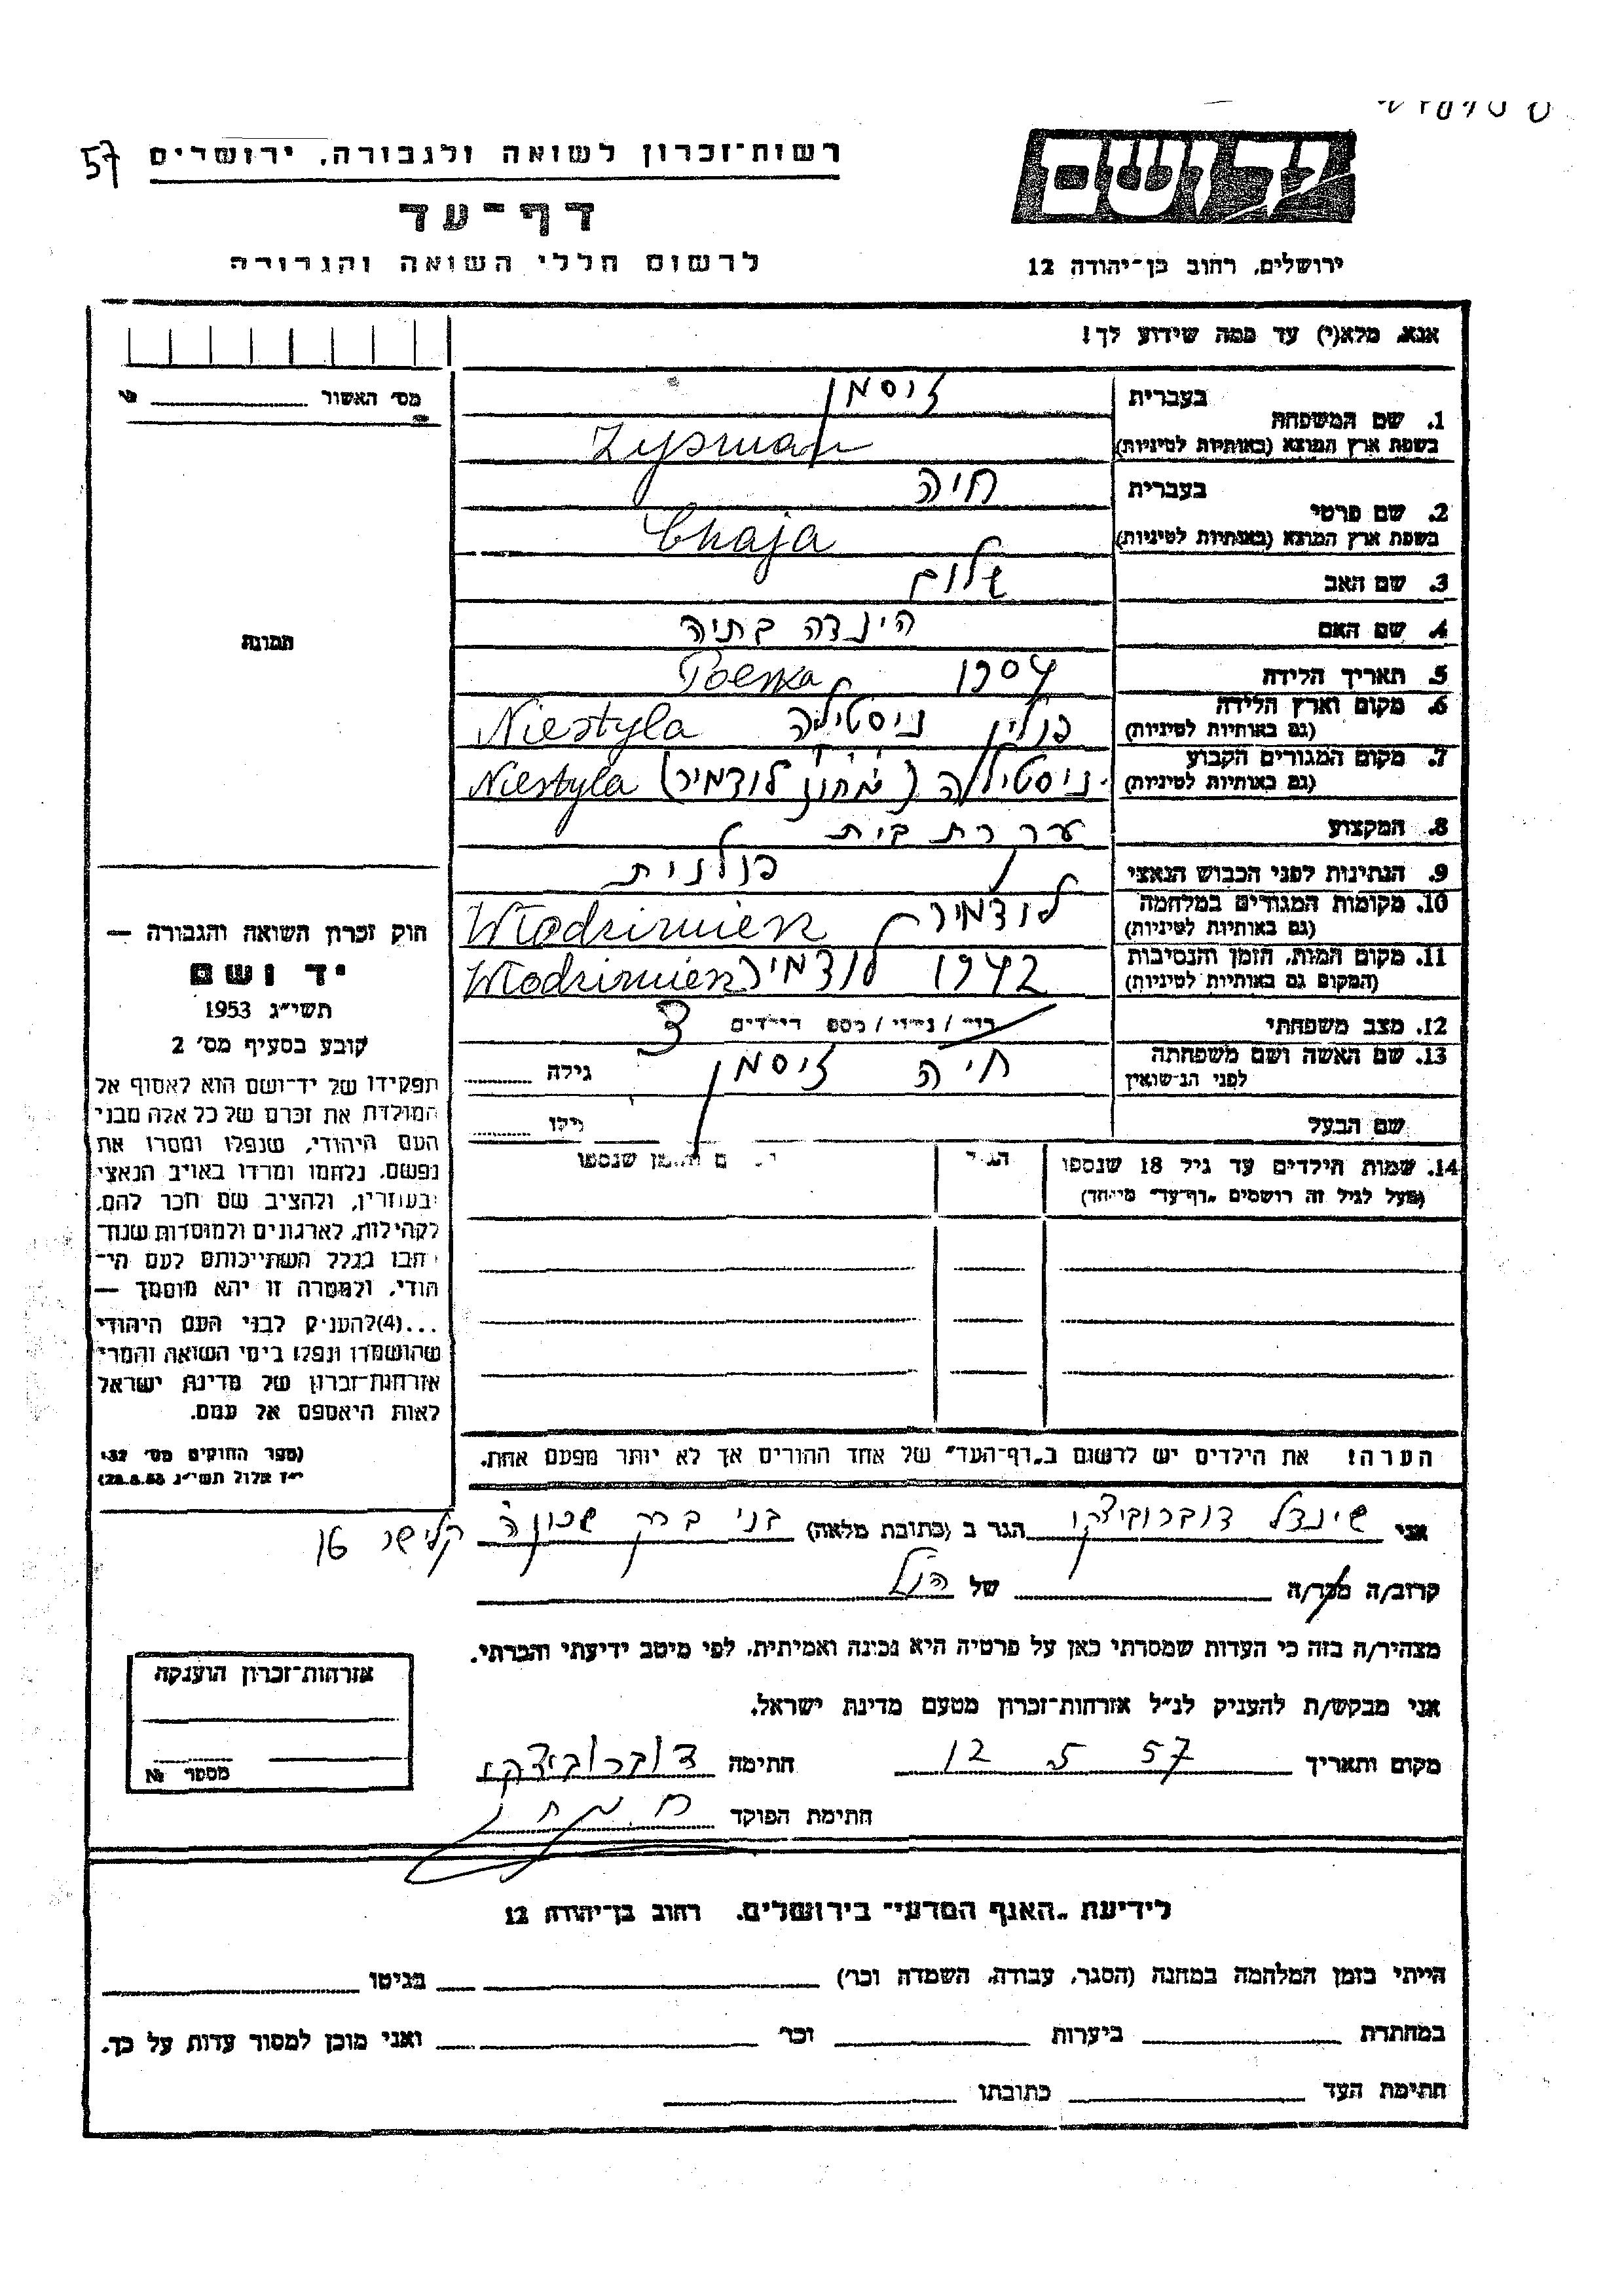 57
רשות-זכרון לשואה ולגבורה, ירושלים
דף-עד
לרשום חללי השואה והגבורה
ידושם
ירושלים, רחוב בן-יהודה 12
אנא, מלא(י) עד כמה שידוע לך!
מס׳ האשור №
1. שם המשפחה
בעברית זיסמן
בשפת ארץ המוצא (באותיות לטיניות) Zysman
2. שם פרטי
בעברית חיה
בשפת ארץ המוצא (באותיות לטיניות) Chaja
3. שם האב שלום
4. שם האם הינדה בתיה
5. תאריך הלידה 1904
6. מקום וארץ הלידה פולין ניסטילה Niestyla Polska
(גם באותיות לטיניות)
7. מקום המגורים הקבוע ניסטילה (מחוז לודמיר) Niestyla
(גם באותיות לטיניות)
8. המקצוע עקרת בית
9. הנתינות לפני הכבוש הנאצי פולנית
10. מקומות המגורים במלחמה לודמיר Włodzimierz
(גם באותיות לטיניות)
11. מקום המות, הזמן והנסיבות 1942 לודמיר Włodzimierz
(המקום גם באותיות לטיניות)
12. מצב משפחתי רוק / נשוי / מספר הילדים 3
13. שם האשה ושם משפחתה חיה זיסמן גילה
לפני הנישואין
שם הבעל גילו
14. שמות הילדים עד גיל 18 שנספו הגיל המקום והזמן שנספו
(מעל לגיל זה רושמים "דף-עד" מיוחד)
הערה! את הילדים יש לרשום ב"דף-העד" של אחד ההורים אך לא יותר מפעם אחת.
תמונה
חוק זכרון השואה והגבורה —
יד ושם
תשי״ג 1953
קובע בסעיף מס׳ 2
תפקידו של יד-ושם הוא לאסוף אל
המולדת את זכרם של כל אלה מבני
העם היהודי, שנפלו ומסרו את
נפשם, נלחמו ומרדו באויב הנאצי
ובעוזריו, ולהציב שם וזכר להם,
לקהילות, לארגונים ולמוסדות שנח-
רבו בגלל השתייכותם לעם הי-
הודי, ולמטרה זו יהא מוסמך —
...(4) להעניק לבני העם היהודי
שהושמדו ונפלו בימי השואה והמרי
אזרחות-זכרון של מדינת ישראל
לאות היאספם אל עמם.
(ספר החוקים מס׳ 132
י״ז אלול תשי״ג 28.8.53)
אני שינדל דוברוביצקי הגר ב (כתובת מלאה) בני ברק שכונה קלישר 16
קרוב/ה מכר/ה של הנ"ל
מצהיר/ה בזה כי העדות שמסרתי כאן על פרטיה היא נכונה ואמיתית, לפי מיטב ידיעתי והכרתי.
אני מבקש/ת להעניק לנ״ל אזרחות-זכרון מטעם מדינת ישראל.
מקום ותאריך 12 5 57 חתימה דוברוביצקי
חתימת הפוקד
אזרחות-זכרון הוענקה
מספר №
לידיעת "האגף המדעי" בירושלים, רחוב בן-יהודה 12
הייתי בזמן המלחמה במחנה (הסגר, עבודה, השמדה וכו׳) בגיטו
במחתרת ביערות וכו׳ ואני מוכן למסור עדות על כך.
חתימת העד כתובתו